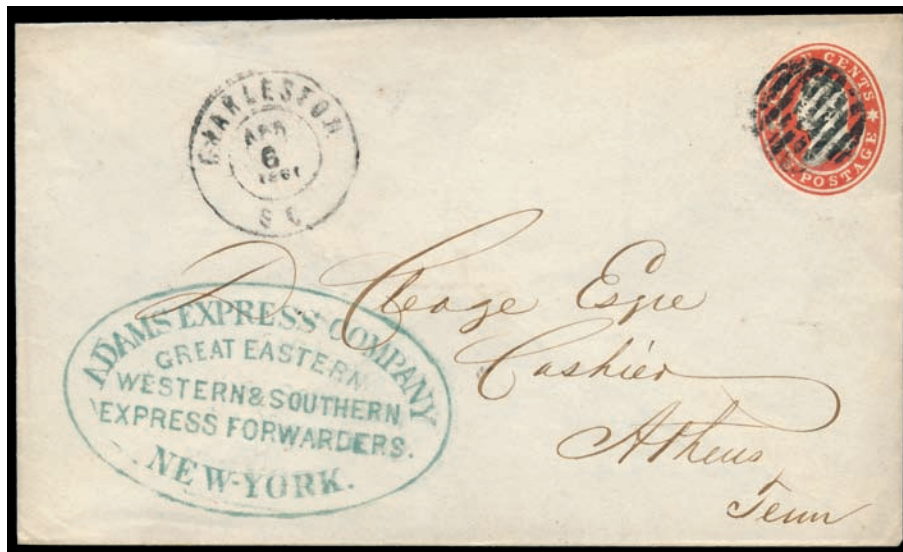 CENTS *
POSTAGE
CHARLESTON
APR
6
1861
S C
D Cleage Esqre
Cashier
Athens
Tenn
ADAMS EXPRESS COMPANY
GREAT EASTERN
WESTERN & SOUTHERN
EXPRESS FORWARDERS.
NEW-YORK.